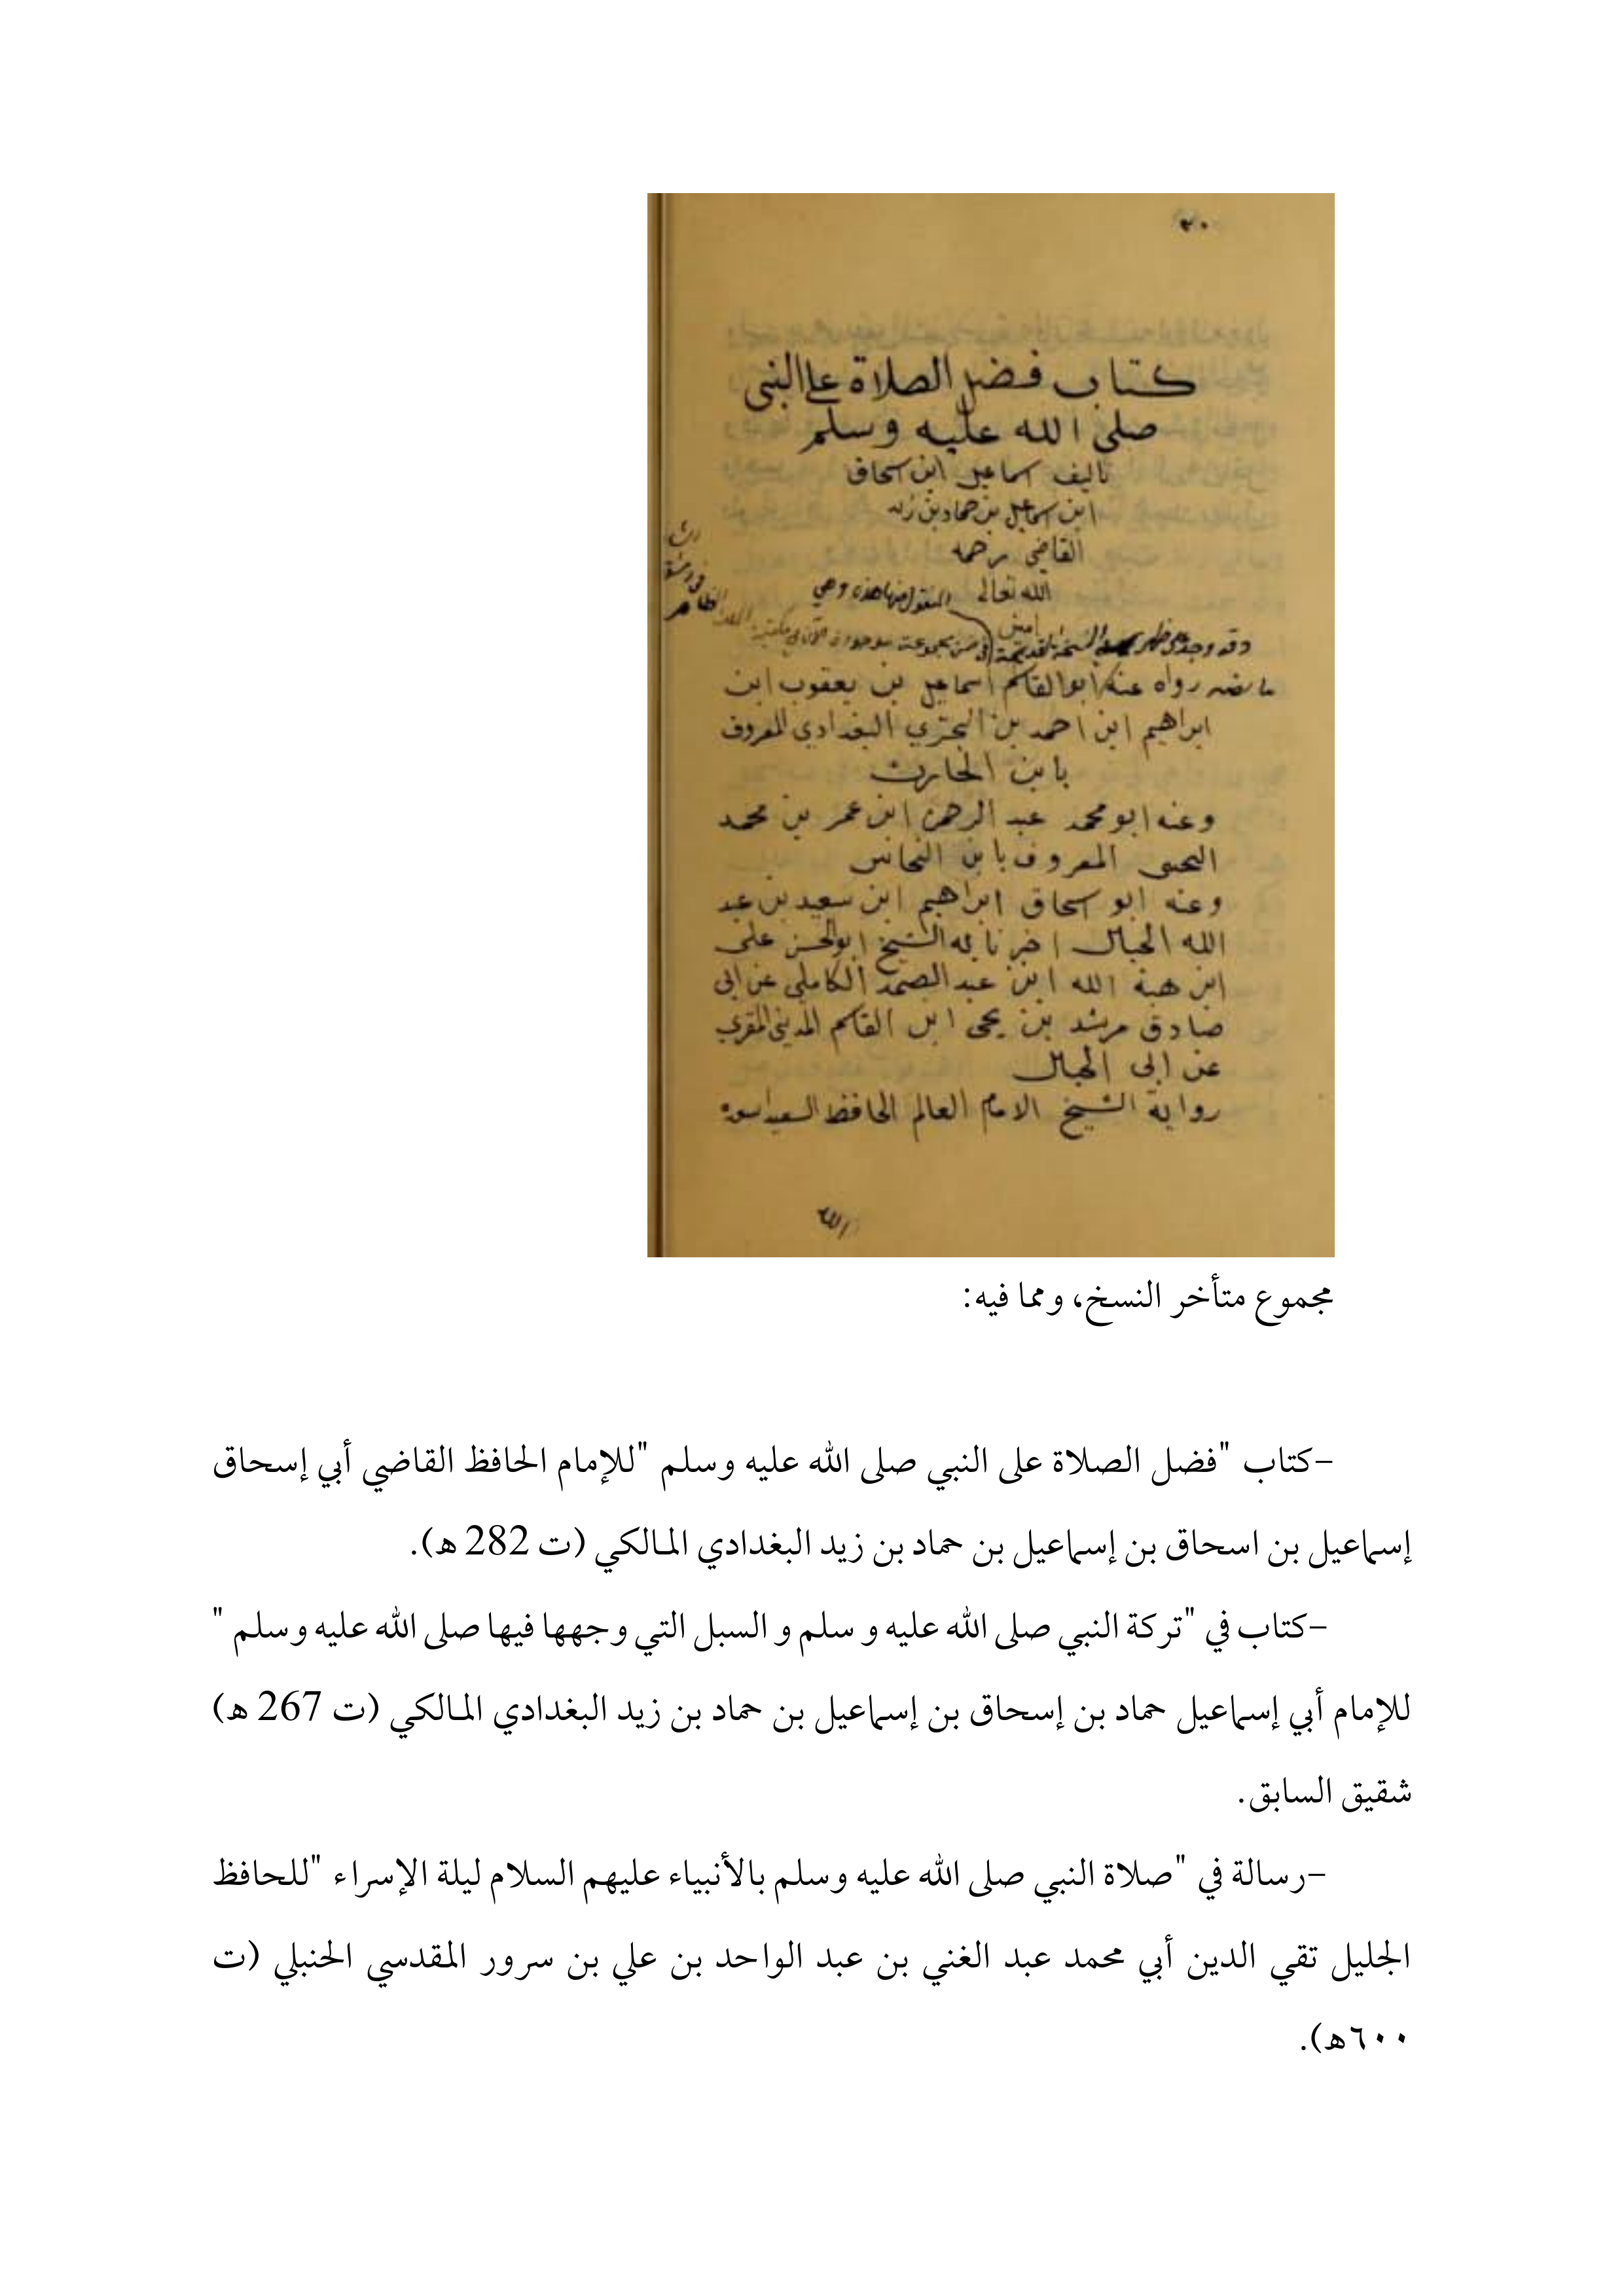 ٢٠
كتاب فضل الصلاة على النبي
صلى الله عليه وسلم
تاليف اسماعيل ابن اسحاق
ابن اسماعيل بن حماد بن زيد
القاضي رحمه
الله تعالى المنقول منها هذه وهي
وقد وجد على ظهر النسخة القديمة في ضمن مجموعة موجودة الآن في مكتبة
ما نصه رواه عنه ابو القاسم اسماعيل بن يعقوب ابن
ابراهيم ابن احمد بن البحتري البغدادي المعروف
بابن الحارث
وعنه ابو محمد عبد الرحمن ابن عمر بن محمد
المعروف بابن النحاس
وعنه ابو اسحاق ابراهيم ابن سعيد بن عبد
الله الحبال اخبرنا به الشيخ ابو الحسن على
ابن هبة الله ابن عبد الصمد الكاملي عن ابى
صادق مرشد بن يحيى ابن القاسم المديني المقري
عن ابى الحبال
رواية الشيخ الامام العالم الحافظ السعيد
مجموع متأخر النسخ، ومما فيه:
-كتاب "فضل الصلاة على النبي صلى الله عليه وسلم "للإمام الحافظ القاضي أبي إسحاق
إسماعيل بن اسحاق بن إسماعيل بن حماد بن زيد البغدادي المالكي (ت 282 ه).
-كتاب في "تركة النبي صلى الله عليه و سلم و السبل التي وجهها فيها صلى الله عليه وسلم "
للإمام أبي إسماعيل حماد بن إسحاق بن إسماعيل بن حماد بن زيد البغدادي المالكي (ت 267 ه)
شقيق السابق.
-رسالة في "صلاة النبي صلى الله عليه وسلم بالأنبياء عليهم السلام ليلة الإسراء "للحافظ
الجليل تقي الدين أبي محمد عبد الغني بن عبد الواحد بن علي بن سرور المقدسي الحنبلي (ت
٦٠٠ه).